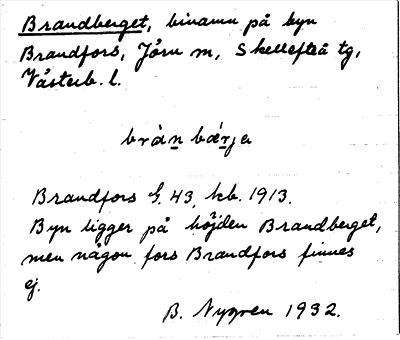 Brandberget, binamn på byn
Brandfors, Jörn sn, Skellefteå tg,
Västerb. l.
bràn bǽrja
Brandfors G. 43, kb. 1913.
Byn ligger på höjden Brandberget,
men någon fors Brandfors finnes
ej.
B. Nygren 1932.